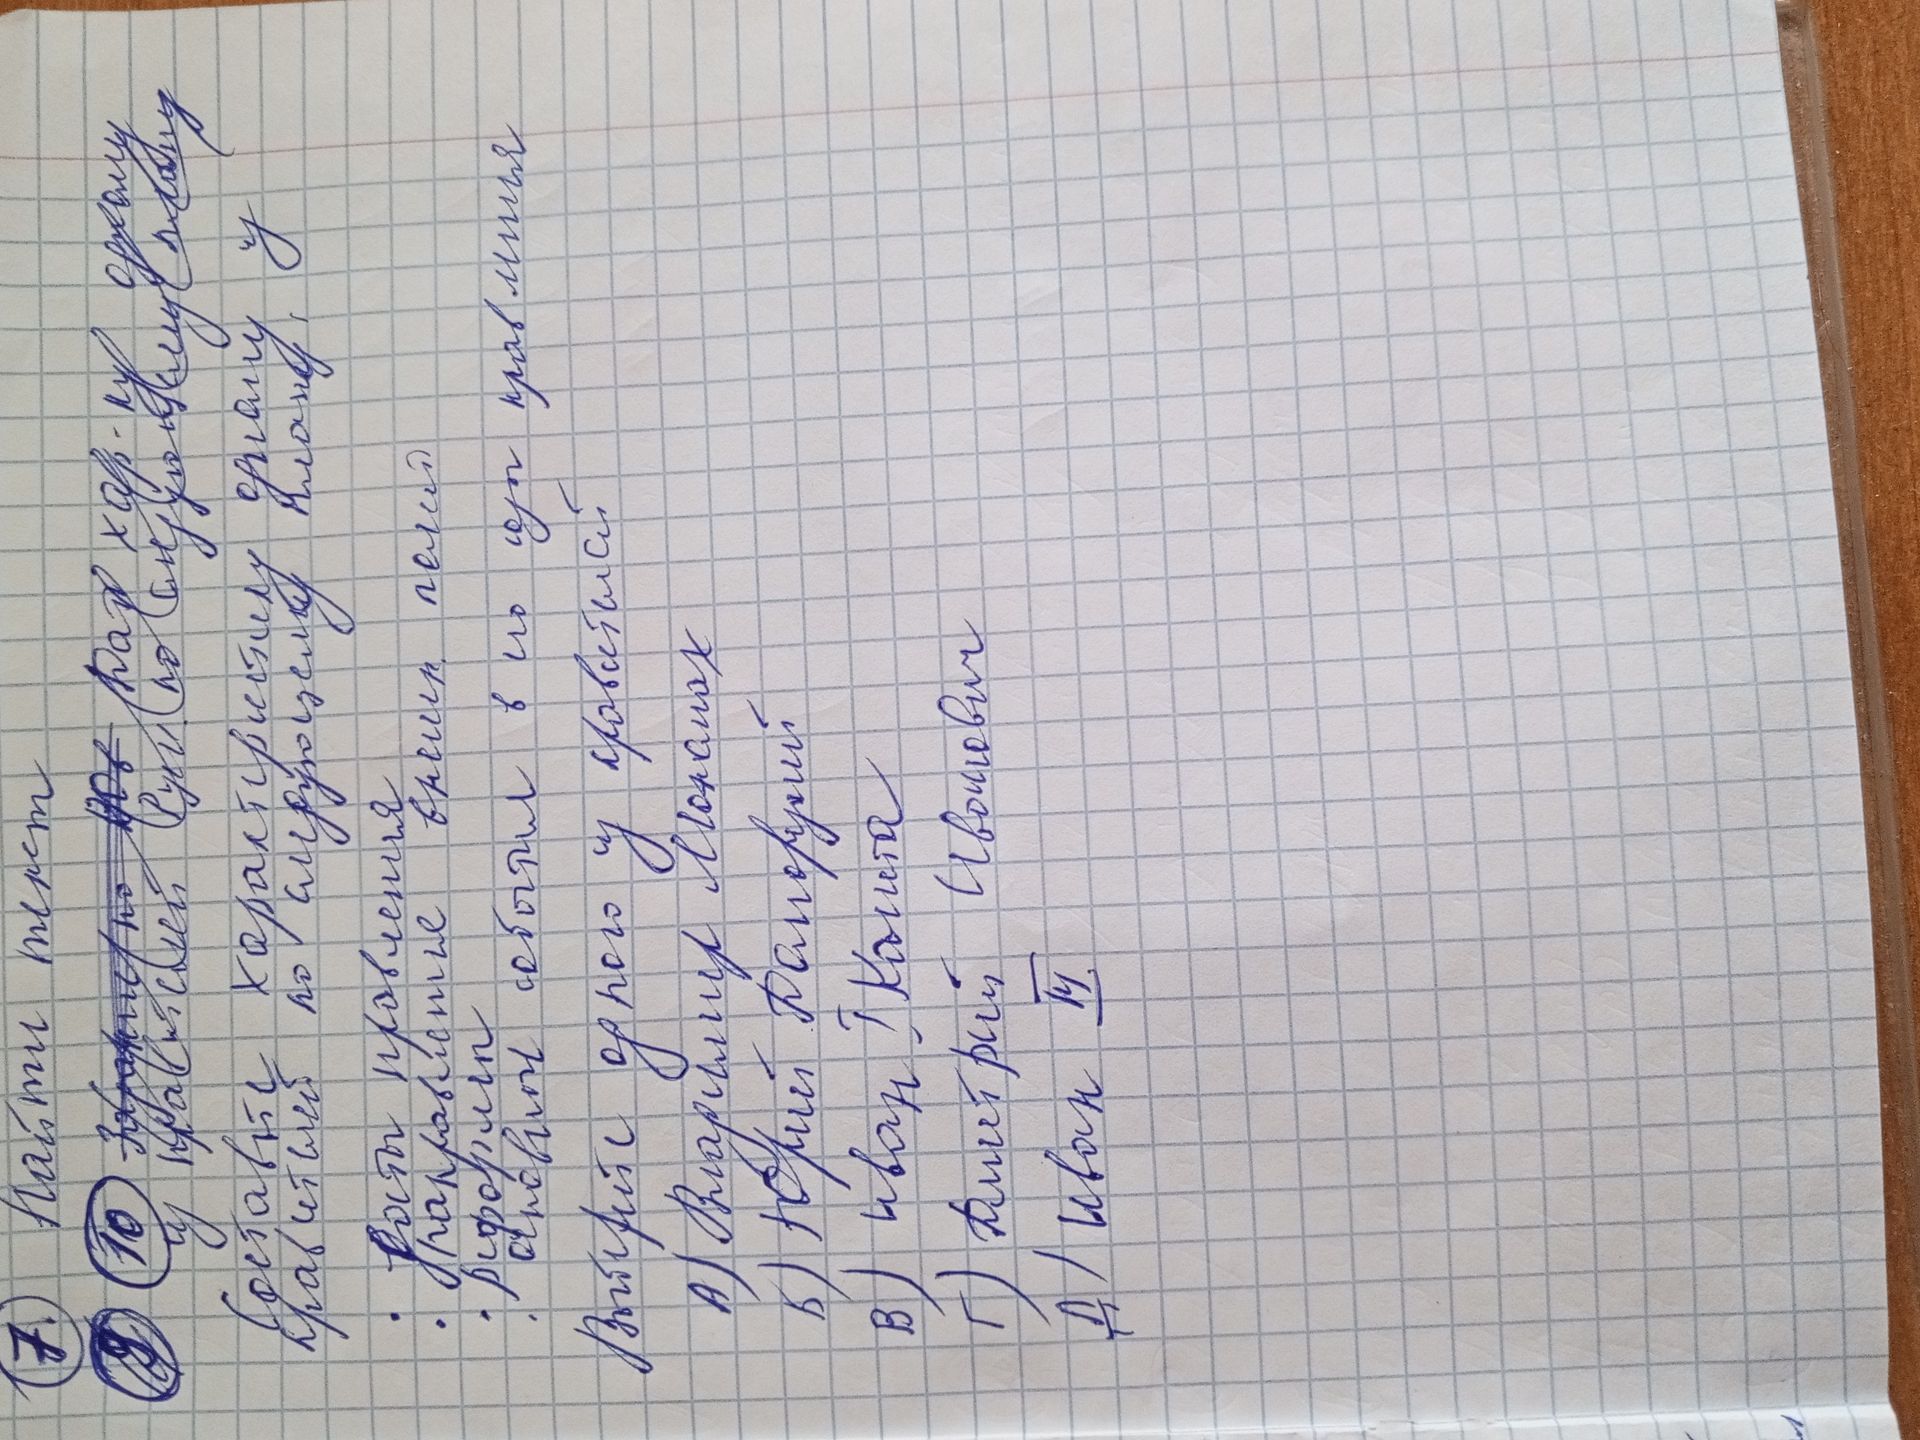 7. Найти текст
10 Дать хар-ку одному
из правителей Руси по следующему плану
Составьте характеристику одного из
правителей по следующему плану:
• Даты правления
• направление внешн. полит
• реформы
• основные события в его годы правления
Выберите одного из правителей
А) Владимир Мономах
Б) Юрий Долгорукий
В) Иван I Калита
Г) Дмитрий Иванович
Д) Иван III